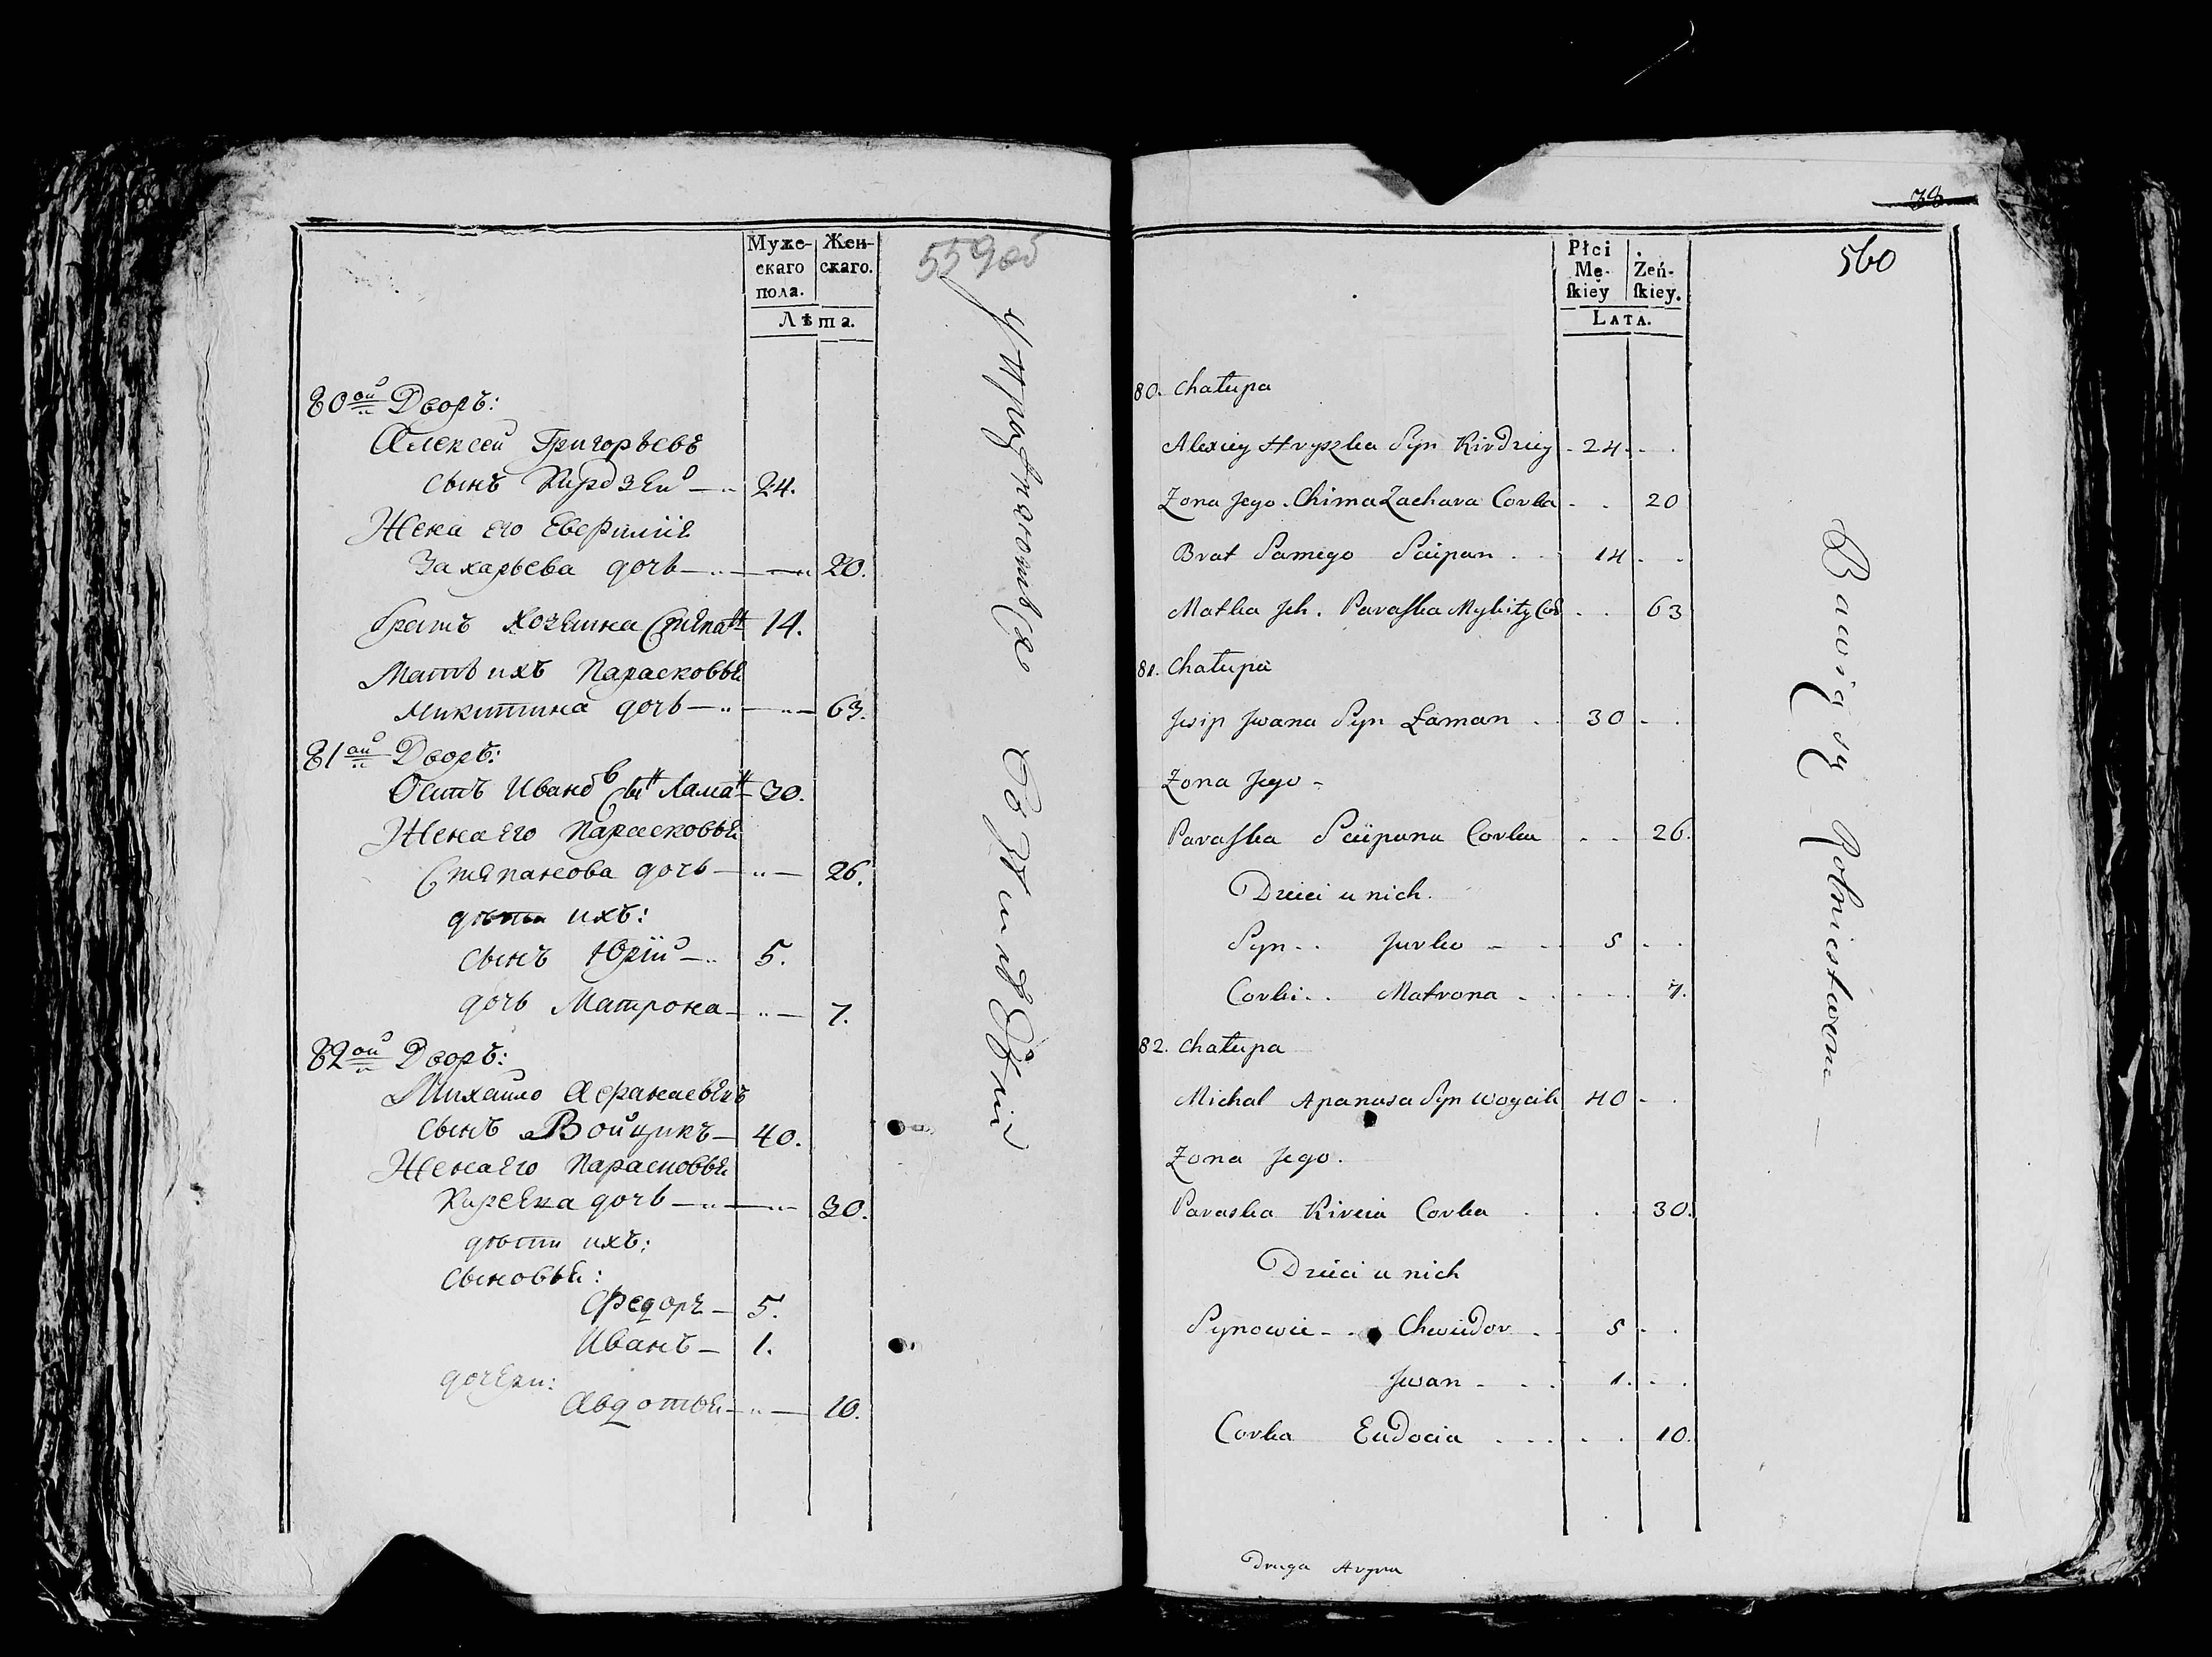 Муже- Жен-
скаго скаго.
пола.
Лѣта.
559об
80ой Дворъ:
Алексей Григорьевъ
сынъ Кирдзей — 24.
Жена его Евфимія
Захарьева дочь — 20.
братъ хозяина Степанъ 14.
Мать ихъ Парасковья
Микитина дочь — 63.
81ой Дворъ:
Осипъ Ивановъ Сынъ Ламанъ 30.
Жена Его Парасковья
Степанова дочь — 26.
дѣти ихъ:
сынъ Юрій — 5.
дочь Матрона — 7.
82ой Дворъ:
Михайло Афанасьевъ
сынъ Войцикъ — 40.
Жена Его Парасковья
дочь — 30.
дѣти ихъ:
сыновья:
Федоръ — 5.
Иванъ — 1.
дочери:
Авдотья — 10.
Упражняются
38
560
Płci
Mę- Żeń-
skiey skiey.
LATA.
80. Chałupa
Alexiey Hryszka Syn Kirdziey 24
Zona Jego. Chima Zachara Corka 20
Brat Samego Sciepan 14
Matka Jch. Paraska Mykity Cor 63
81. Chałupa
Jwan Syn Łaman 30
Zona Jego
Paraska Sciepana Corka 26.
Dzieci u nich.
Syn Jurko 5
Corki Matrona 7.
82. Chałupa
Michal Apanasa Syn Woycik 40
Zona Jego.
Paraska Kireia Corka 30.
Dzieci u nich
Synowie Chwiedor 5
Jwan 1.
Corka Eudocia 10.
Bawią się Rolnictwem
Druga